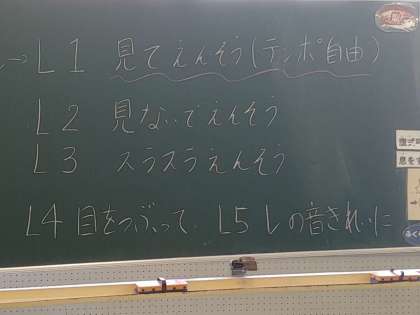 →L1 見てえんそう(テンポ自由)
L2 見ないでえんそう
L3 スラスラえんそう
L4 目をつぶって L5 レの音きれいに